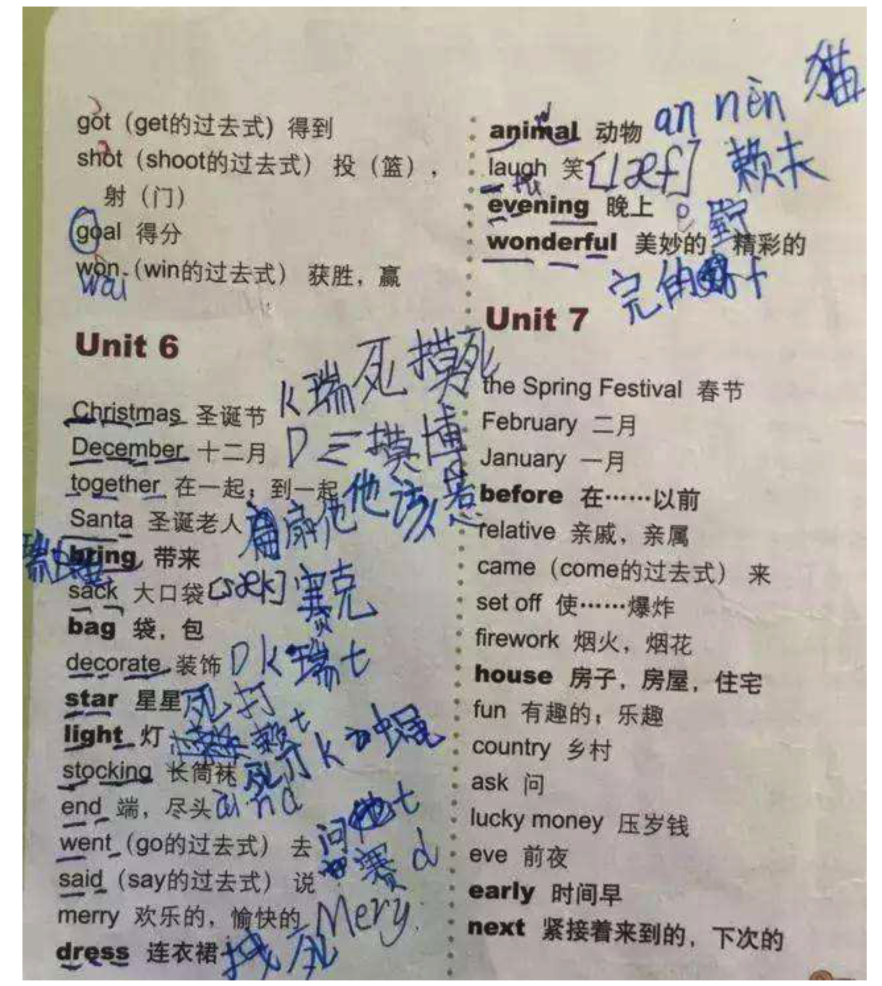 got（get的过去式）得到
shot（shoot的过去式）投（篮），
射（门）
goal 得分
won（win的过去式）获胜，赢
wai
Unit 6
Christmas 圣诞节 K瑞死摸死
December 十二月 D三摸博
together 在一起；到一起 他该惹
Santa 圣诞老人 扇他
bring 带来
sack 大口袋 [sæk] 赛克
bag 袋，包
decorate 装饰 D K瑞t
star 星星 死打
light 灯 赖t
stocking 长筒袜 死打K
end 端，尽头
went（go的过去式）去 问t
said（say的过去式）说 赛d
merry 欢乐的，愉快的 Mery
dress 连衣裙
animal 动物 an nen 猫
laugh 笑 [læf] 赖夫
evening 晚上
wonderful 美妙的，精彩的
完的
Unit 7
the Spring Festival 春节
February 二月
January 一月
before 在……以前
relative 亲戚，亲属
came（come的过去式）来
set off 使……爆炸
firework 烟火，烟花
house 房子，房屋，住宅
fun 有趣的；乐趣
country 乡村
ask 问
lucky money 压岁钱
eve 前夜
early 时间早
next 紧接着来到的，下次的